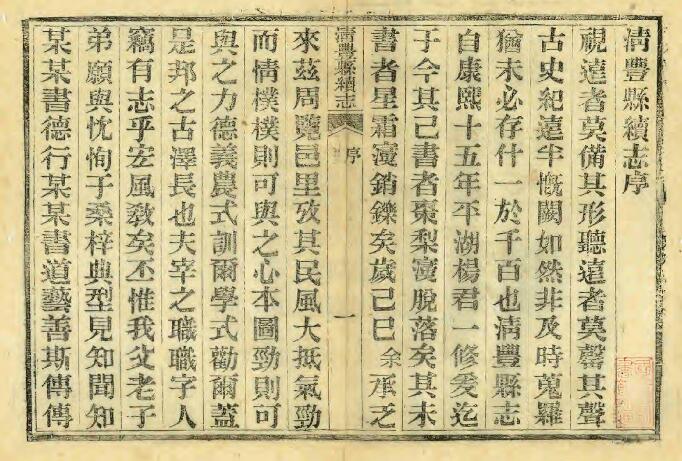 清豐縣續志序
視遠者莫備其形聽遠者莫罄其聲
古史紀遠半慨闕如然非及時蒐羅
猶未必存什一於千百也清豐縣志
自康熙十五年平湖楊君一修爰迄
于今其已書者棗梨寖脫落矣其未
書者星霜寖銷鑠矣歲己巳余承乏
清豐縣續志 序 一
來茲周覽邑里攷其民風大抵氣勁
而情樸樸則可與之心本圖勁則可
與之力德義農式訓爾學式勸爾蓋
是邦之古澤長也夫宰之職職字人
竊有志乎宏風敎矣丕惟我父老子
弟願與忱恂于桑梓典型見知聞知
某某書德行某某書道藝善斯傳傳